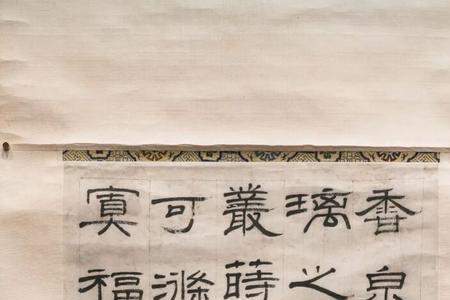 香泉
璃之
叢蒔
可滌
福